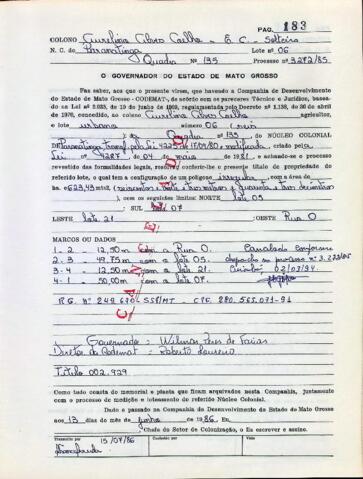 PAG. 183
COLONO Aurelina Alves Coelho - E. C. - Solteira
N. C. de Paranatinga Lote nº 06
Quadra Nº 135 Processo nº 3272/85
O GOVERNADOR DO ESTADO DE MATO GROSSO
Faz saber, aos que o presente virem, que havendo a Companhia de Desenvolvimento
do Estado de Mato Grosso - CODEMAT, de acôrdo com os pareceres Técnico e Jurídico, baseado
na Lei nº 2.035, de 13 de junho de 1963, regulamentada pelo Decreto nº 1.138, de 30 de abril
de 1970, concedido ao colono Aurelina Alves Coelho agricultor,
o lote urbano número 06 (seis)
Quadra nº 135, do NÚCLEO COLONIAL
DE Paranatinga
Lei nº 4287 maio de 1981, e achando-se o processo
revestido das formalidades legais, resolveu conferir-lhe o presente título de propriedade do
referido lote, o qual tem a configuração de um polígono irregular, com a área de
com os seguintes limites: NORTE lote 05
SUL lote 07
LESTE lote 21 OESTE Rua O
MARCOS OU DADOS
1 - 2 - 12,50 m com a Rua O. Cancelado conforme
2 - 3 - 49,75 m com o lote 05.
3 - 4 - 12,50 m com o lote 21. Cuiabá 02/03/94
4 - 1 - 50,00 m com o lote 07.
CANCELADO
R.G. Nº 249.690 SSP/MT - CPF. 280.563.071-91
Governador = Wilmar Peres de Farias
Diretor da Codemat = Roberto Loureiro
Título 002.929
Como tudo consta do memorial e planta que ficam arquivados nesta Companhia, juntamente
com o processo de medição e loteamento do referido Núcleo Colonial.
Dado e passado na Companhia de Desenvolvimento do Estado de Mato Grosso
aos 13 dias do mês de junho de 1986. Eu,
Chefe do Setor de Colonização, o fiz escrever e assino.
Transcrito por 15/07/86 Conferido por Visto